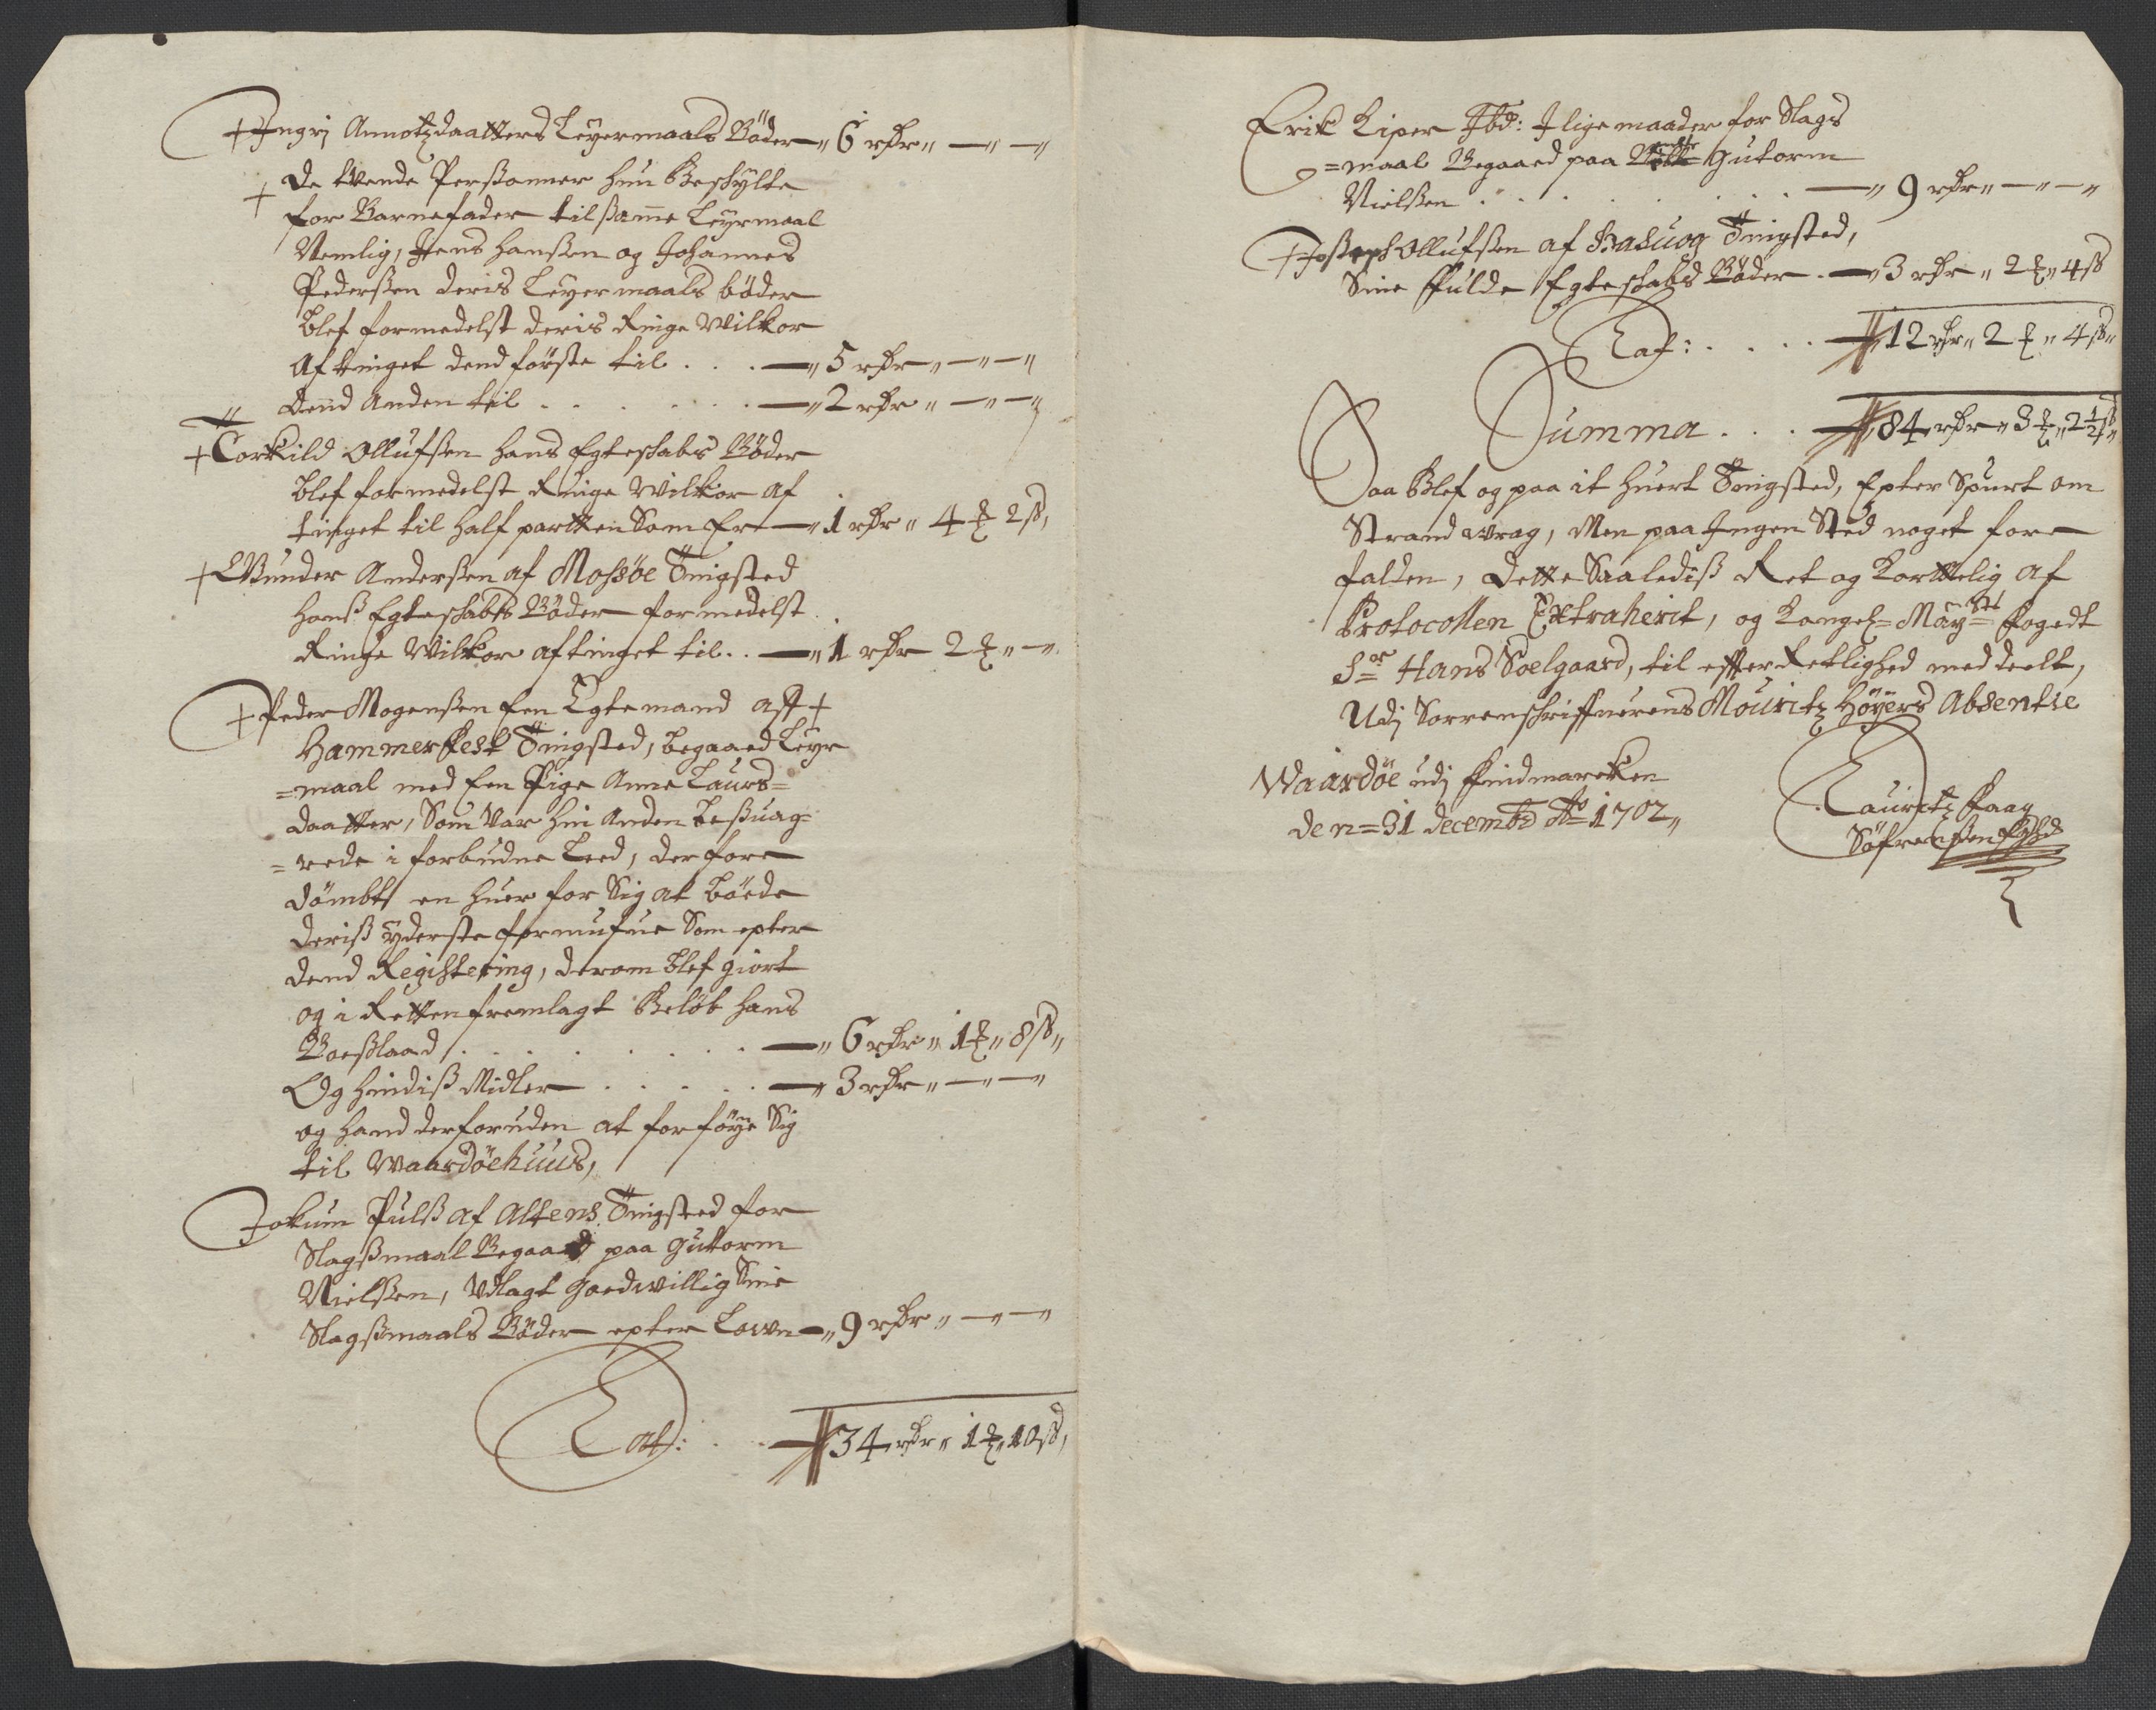 + Ingri Annotzdaatters Leyermaals Böder -„ 6 rdr „ - „ - „
+ De tvende Perßonner hun Beskylte
for Barnefader til ßamme Leyrmaal
Nemlig, Jens Hanßen og Johannes
Pederßen deris Leyermaals böder
blef formedelst deris Ringe Wilkor
Aftinget dend förste til . . . -„ 5 rdr „ - „ - „
Dend Anden til . . . . . . . -„ 2 rdr „ - „ - „
+ Torkild Ollufsen hans Egteskabs Böder
blef formedelst Ringe Wilkor af
tinget til half partten Som Er -„ 1 rdr „ 4 ₰ 2 ß,
+ Gunder Anderßen af Mossöe Tingsted
hanß Egteskabts Böder formedelst
Ringe Wilkor aftinget til . . -„ 1 rdr 2 ₰ „ - „
+ Peder Mogenßen Een Egtemand aff +
Hammerfest Tingsted, begaaed Leyr
=maal med Een Pige Anne Laurs=
daatter, Som Var hin Anden beßuag=
=rede i forbudne Leed, derfore
dömbt en huer for Sig at böede
deriß yderste formufue Som epter
dend Registering, derom blef giort
og i Retten fremlagt Belöb hans
Boeßlaad . . . . . . . . -„ 6 rdr „ 1 ₰ „ 8 ß „
Og hindiß Midler . . . . . -„ 3 rdr „ - „ - „
og hand derforuden at forföye Sig
til Waardöehuus,
Jokum Pulß af Altens Tingsted for
Slagßmaal Begaaed paa Guttorm
Nielßen, Udlagt Goedwillig Sine
Slagßmaals Böder epter Lown -„ 9 rdr „ - „ - „
Lat: . . - 34 rdr „ 1 ₰ „ 10 ß,
Erik Piper Ibd: I lige maader for Slags
=maal Begaaed paa Gutorm
Nielßen . . . . . . . . -„ 9 rdr „ - „ - „
+ Josseph Ollufsen af Hasuog Tingsted,
Sine Fulde Egteskabs Böder . -„ 3 rdr „ 2 ₰ „ 4 ß
Lat: . . . . - 12 rdr „ 2 ₰ „ 4 ß „
Summa . . . - 84 rdr „ 3 ₰ „ 2 1/2 ß „
Saa Blef og paa it huert Tingsted, Epter Spurt om
Strand wrag, Men paa Ingen Sted noget fore
falden, Dette Saalediß Ret og Korttelig af
Protocollen Extraherit, og Kongel= Mayts Fogedt
Sr Hans Soelgaard, til effter Retlighed meddeelt,
Udj Sorrenschriffuerens Mouritz Höyers Absentie
Waardöe udj Findmarcken
den= 31 decembr Ao 1702 „
Lauritz Faag
Söfrenßen